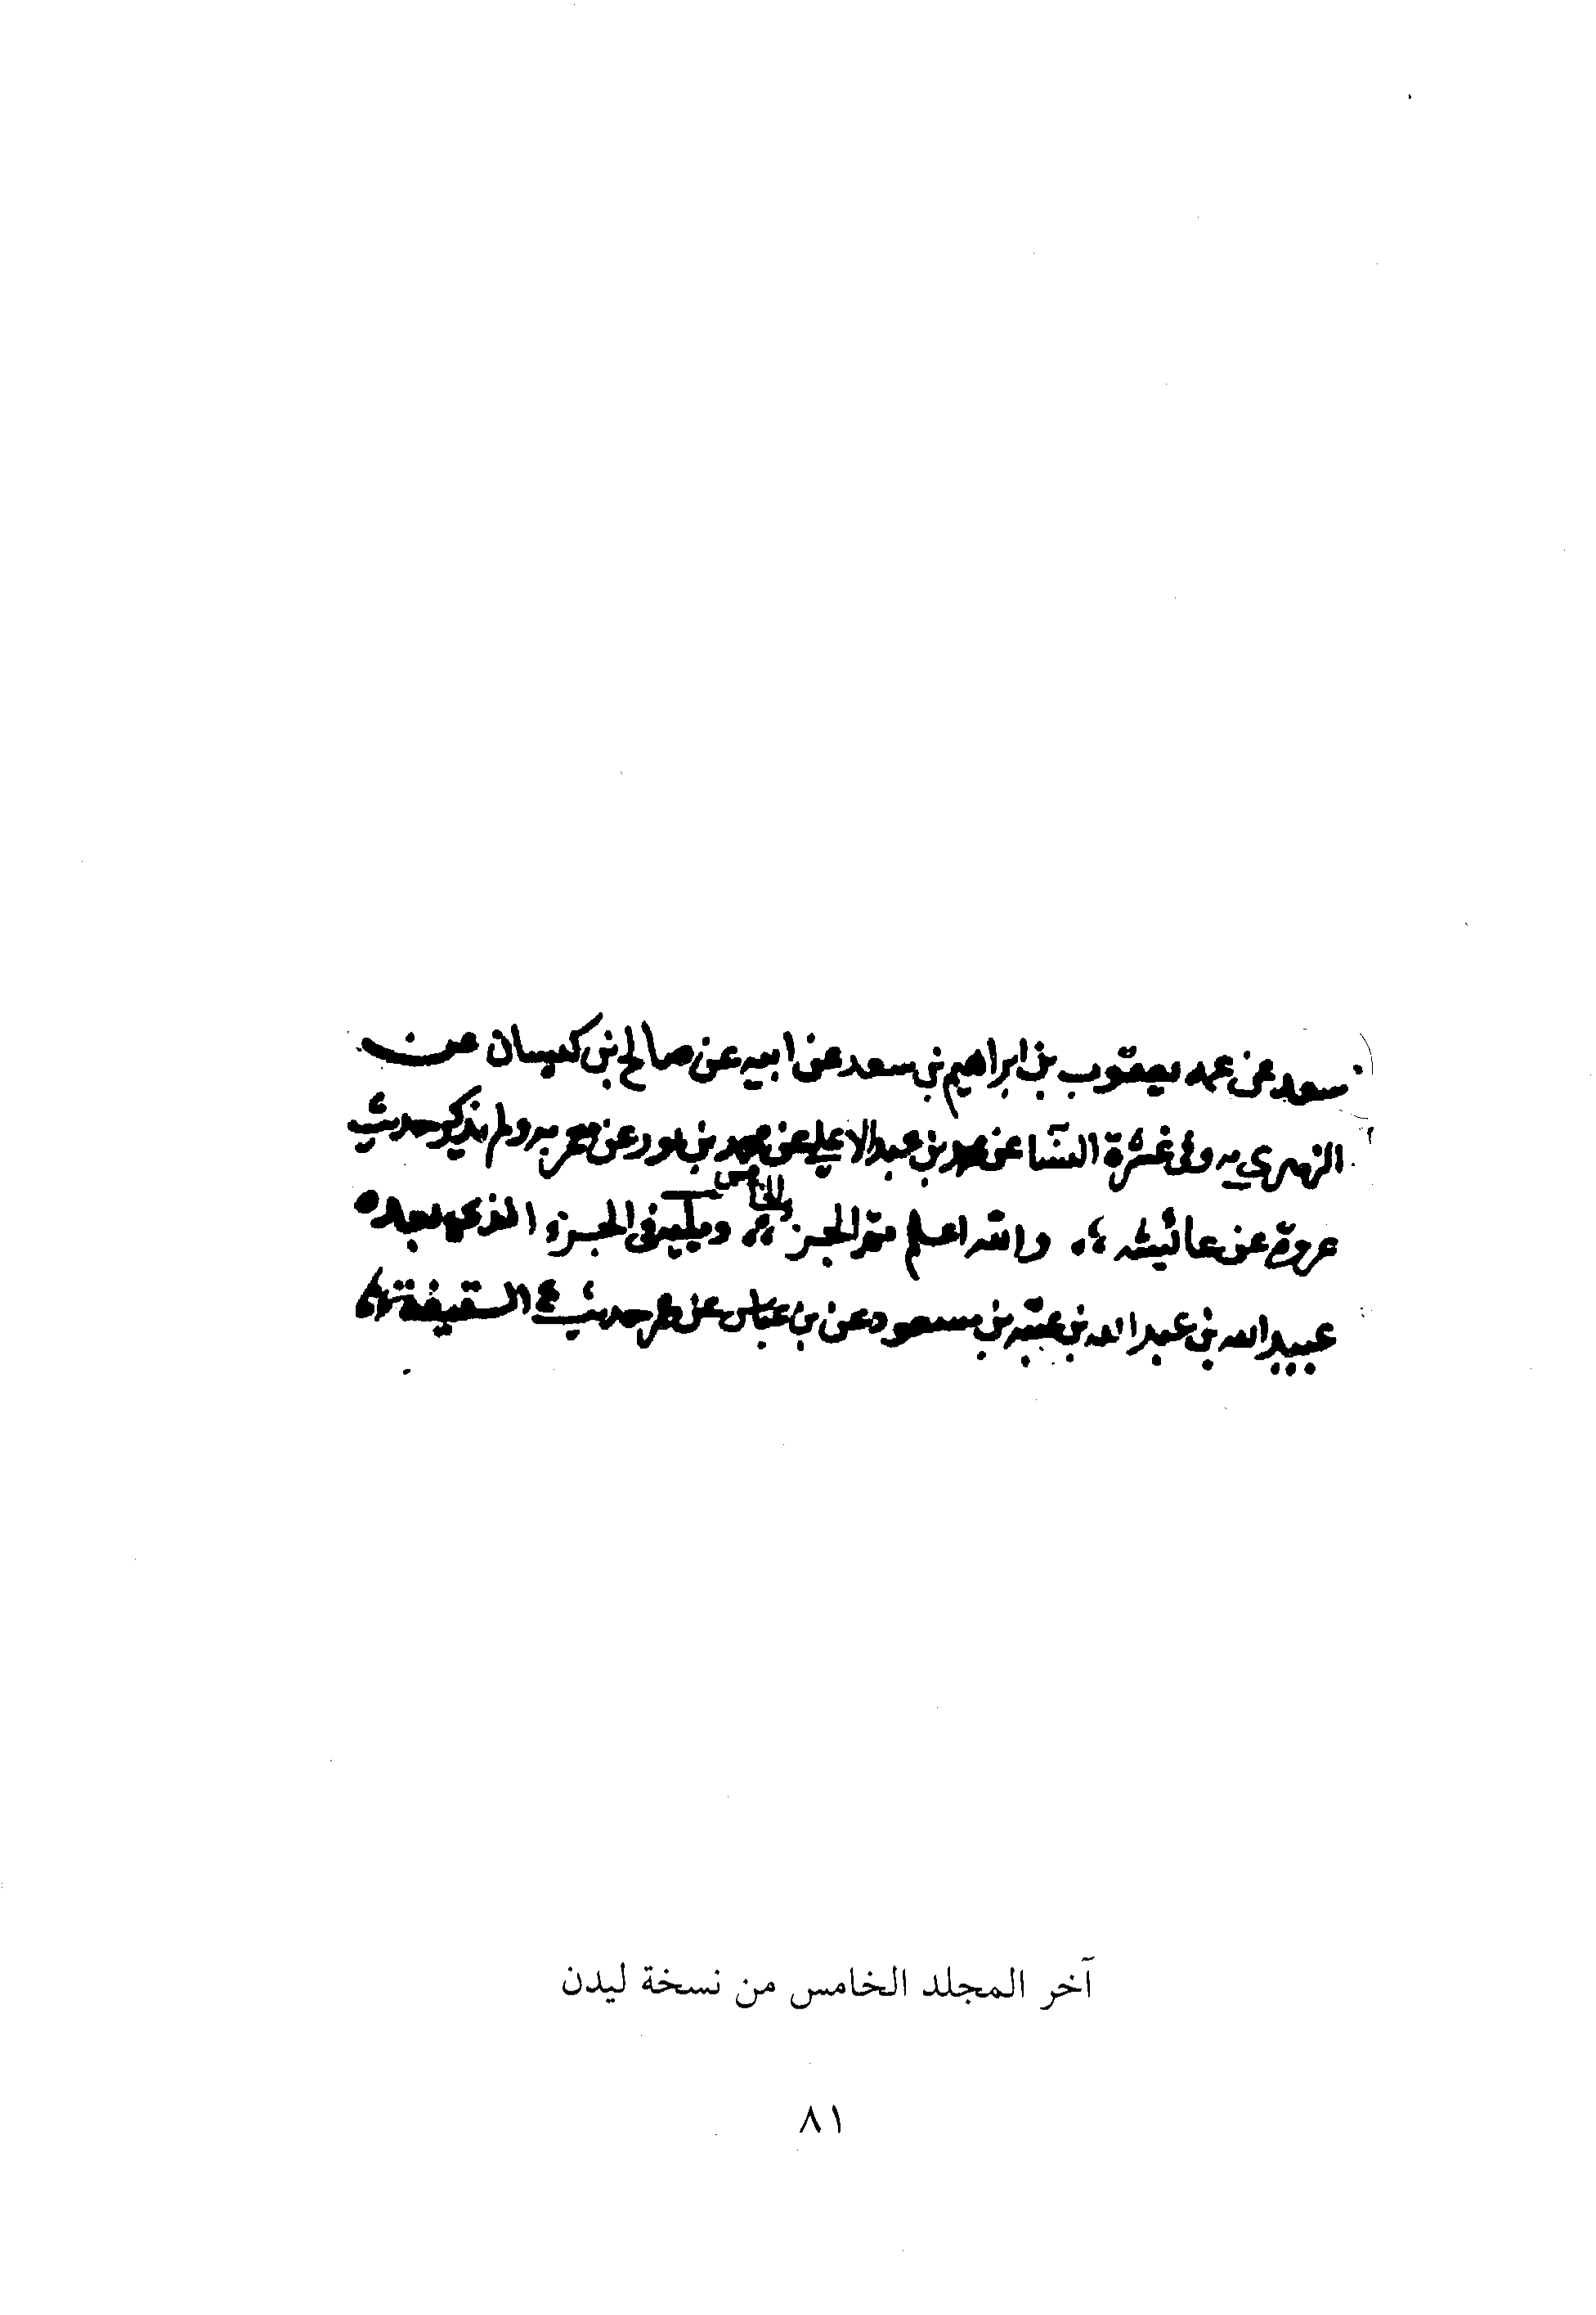 سعد عن عمه يعقوب بن ابراهيم بن سعد عن ابيه عن صالح بن كيسان عن
الزهري به وفي عشرة النسا عن محمد بن عبد الاعلي عن محمد بن ثور عن معمر به ولم يذكر حديث
عروة عن عائيشه والله اعلم تم الجز الخامس ويليه في الجزء الذي بعده
عبيد الله بن عبد الله بن عتبه بن مسعود عن بن عباس عن عمر حديث السقيفة
آخر المجلد الخامس من نسخة ليدن
٨١